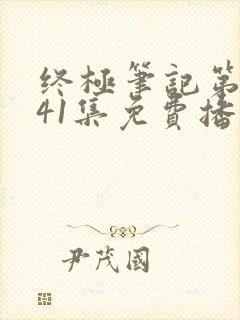 终極筆記第
41集免費播
尹茂國